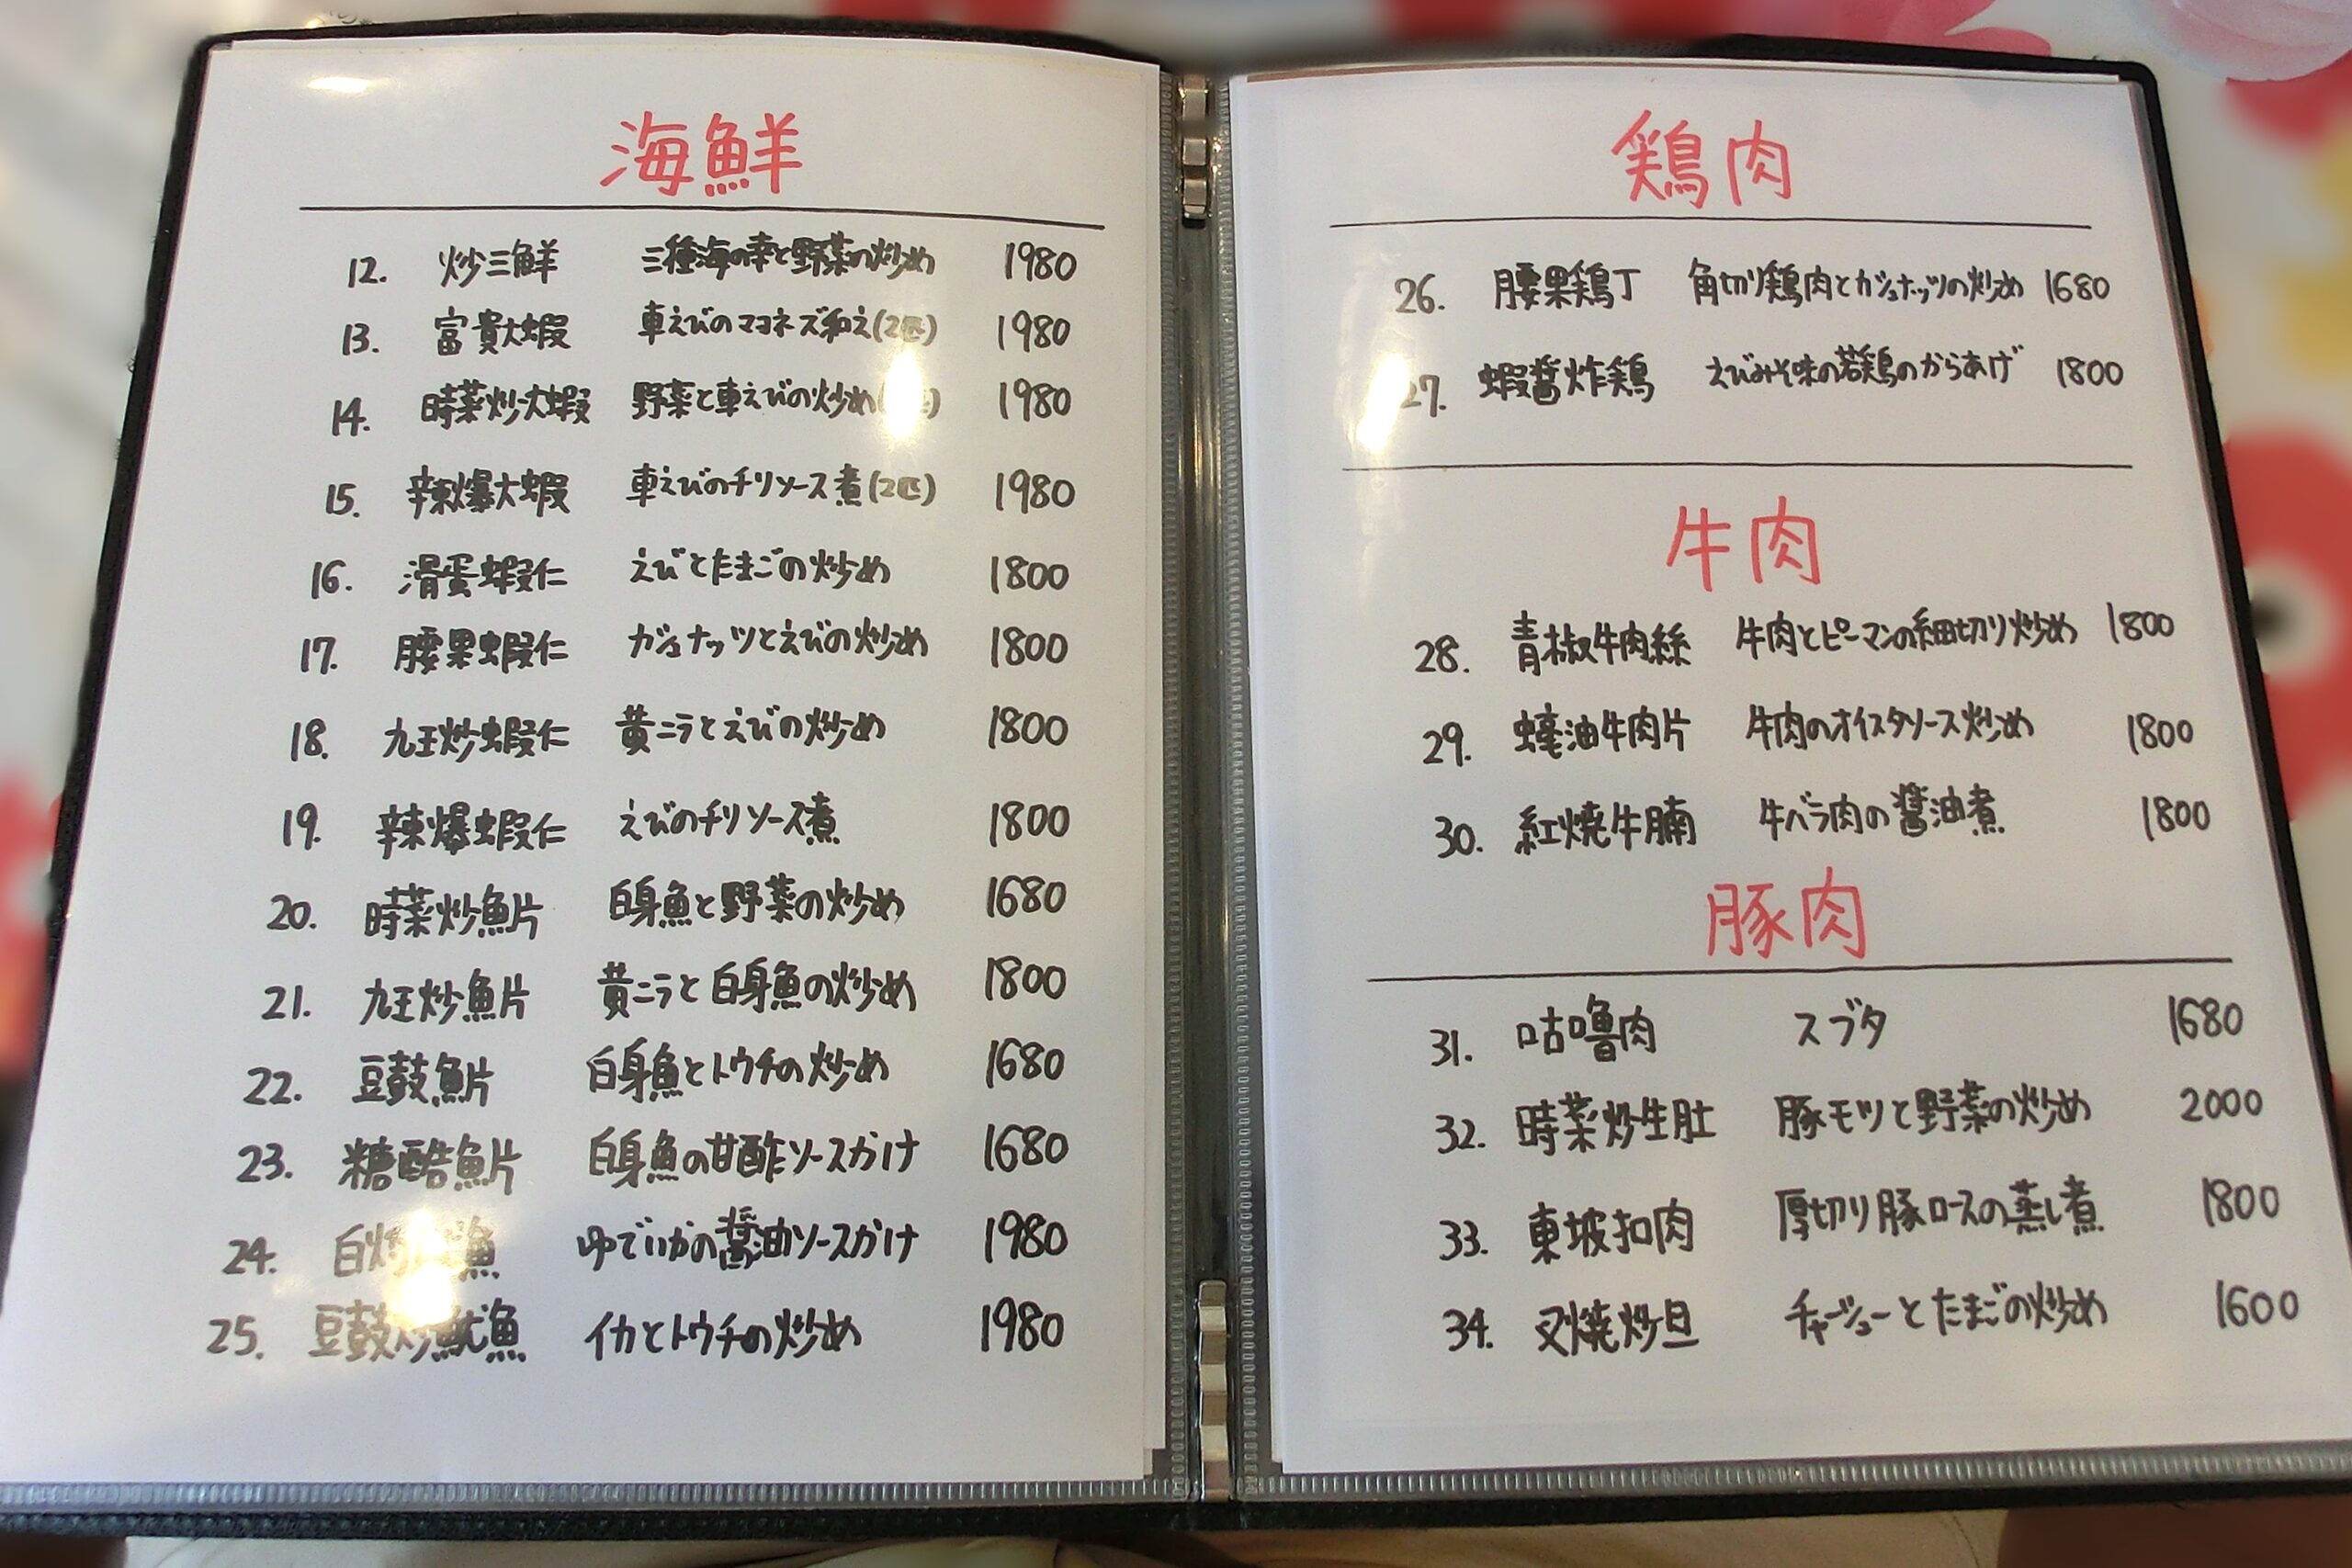 海鮮
12. 炒三鮮 三種海の幸と野菜の炒め 1980
13. 富貴大蝦 車えびのマヨネズ和え(2匹) 1980
14. 時菜炒大蝦 野菜と車えびの炒め 1980
15. 辣爆大蝦 車えびのチリソース煮(2匹) 1980
16. 滑蛋蝦仁 えびとたまごの炒め 1800
17. 腰果蝦仁 ガシュナッツとえびの炒め 1800
18. 九王炒蝦仁 黄ニラとえびの炒め 1800
19. 辣爆蝦仁 えびのチリソース煮 1800
20. 時菜炒魚片 白身魚と野菜の炒め 1680
21. 九王炒魚片 黄ニラと白身魚の炒め 1800
22. 豆鼓魚片 白身魚とトウチの炒め 1680
23. 糖酷魚片 白身魚の甘酢ソースかけ 1680
24. 白灼 魚 ゆでいかの醤油ソースかけ 1980
25. 豆鼓炒魷魚 イカとトウチの炒め 1980
鶏肉
26. 腰果鶏丁 角切り鶏肉とガシュナッツの炒め 1680
27. 蝦醤炸鶏 えびみそ味の若鶏のからあげ 1800
牛肉
28. 青椒牛肉絲 牛肉とピーマンの細切り炒め 1800
29. 蠔油牛肉片 牛肉のオイスタソース炒め 1800
30. 紅焼牛腩 牛バラ肉の醤油煮 1800
豚肉
31. 咕嚕肉 スブタ 1680
32. 時菜炒生肚 豚モツと野菜の炒め 2000
33. 東坡扣肉 厚切り豚ロースの蒸し煮 1800
34. 叉焼炒旦 チャーシューとたまごの炒め 1600